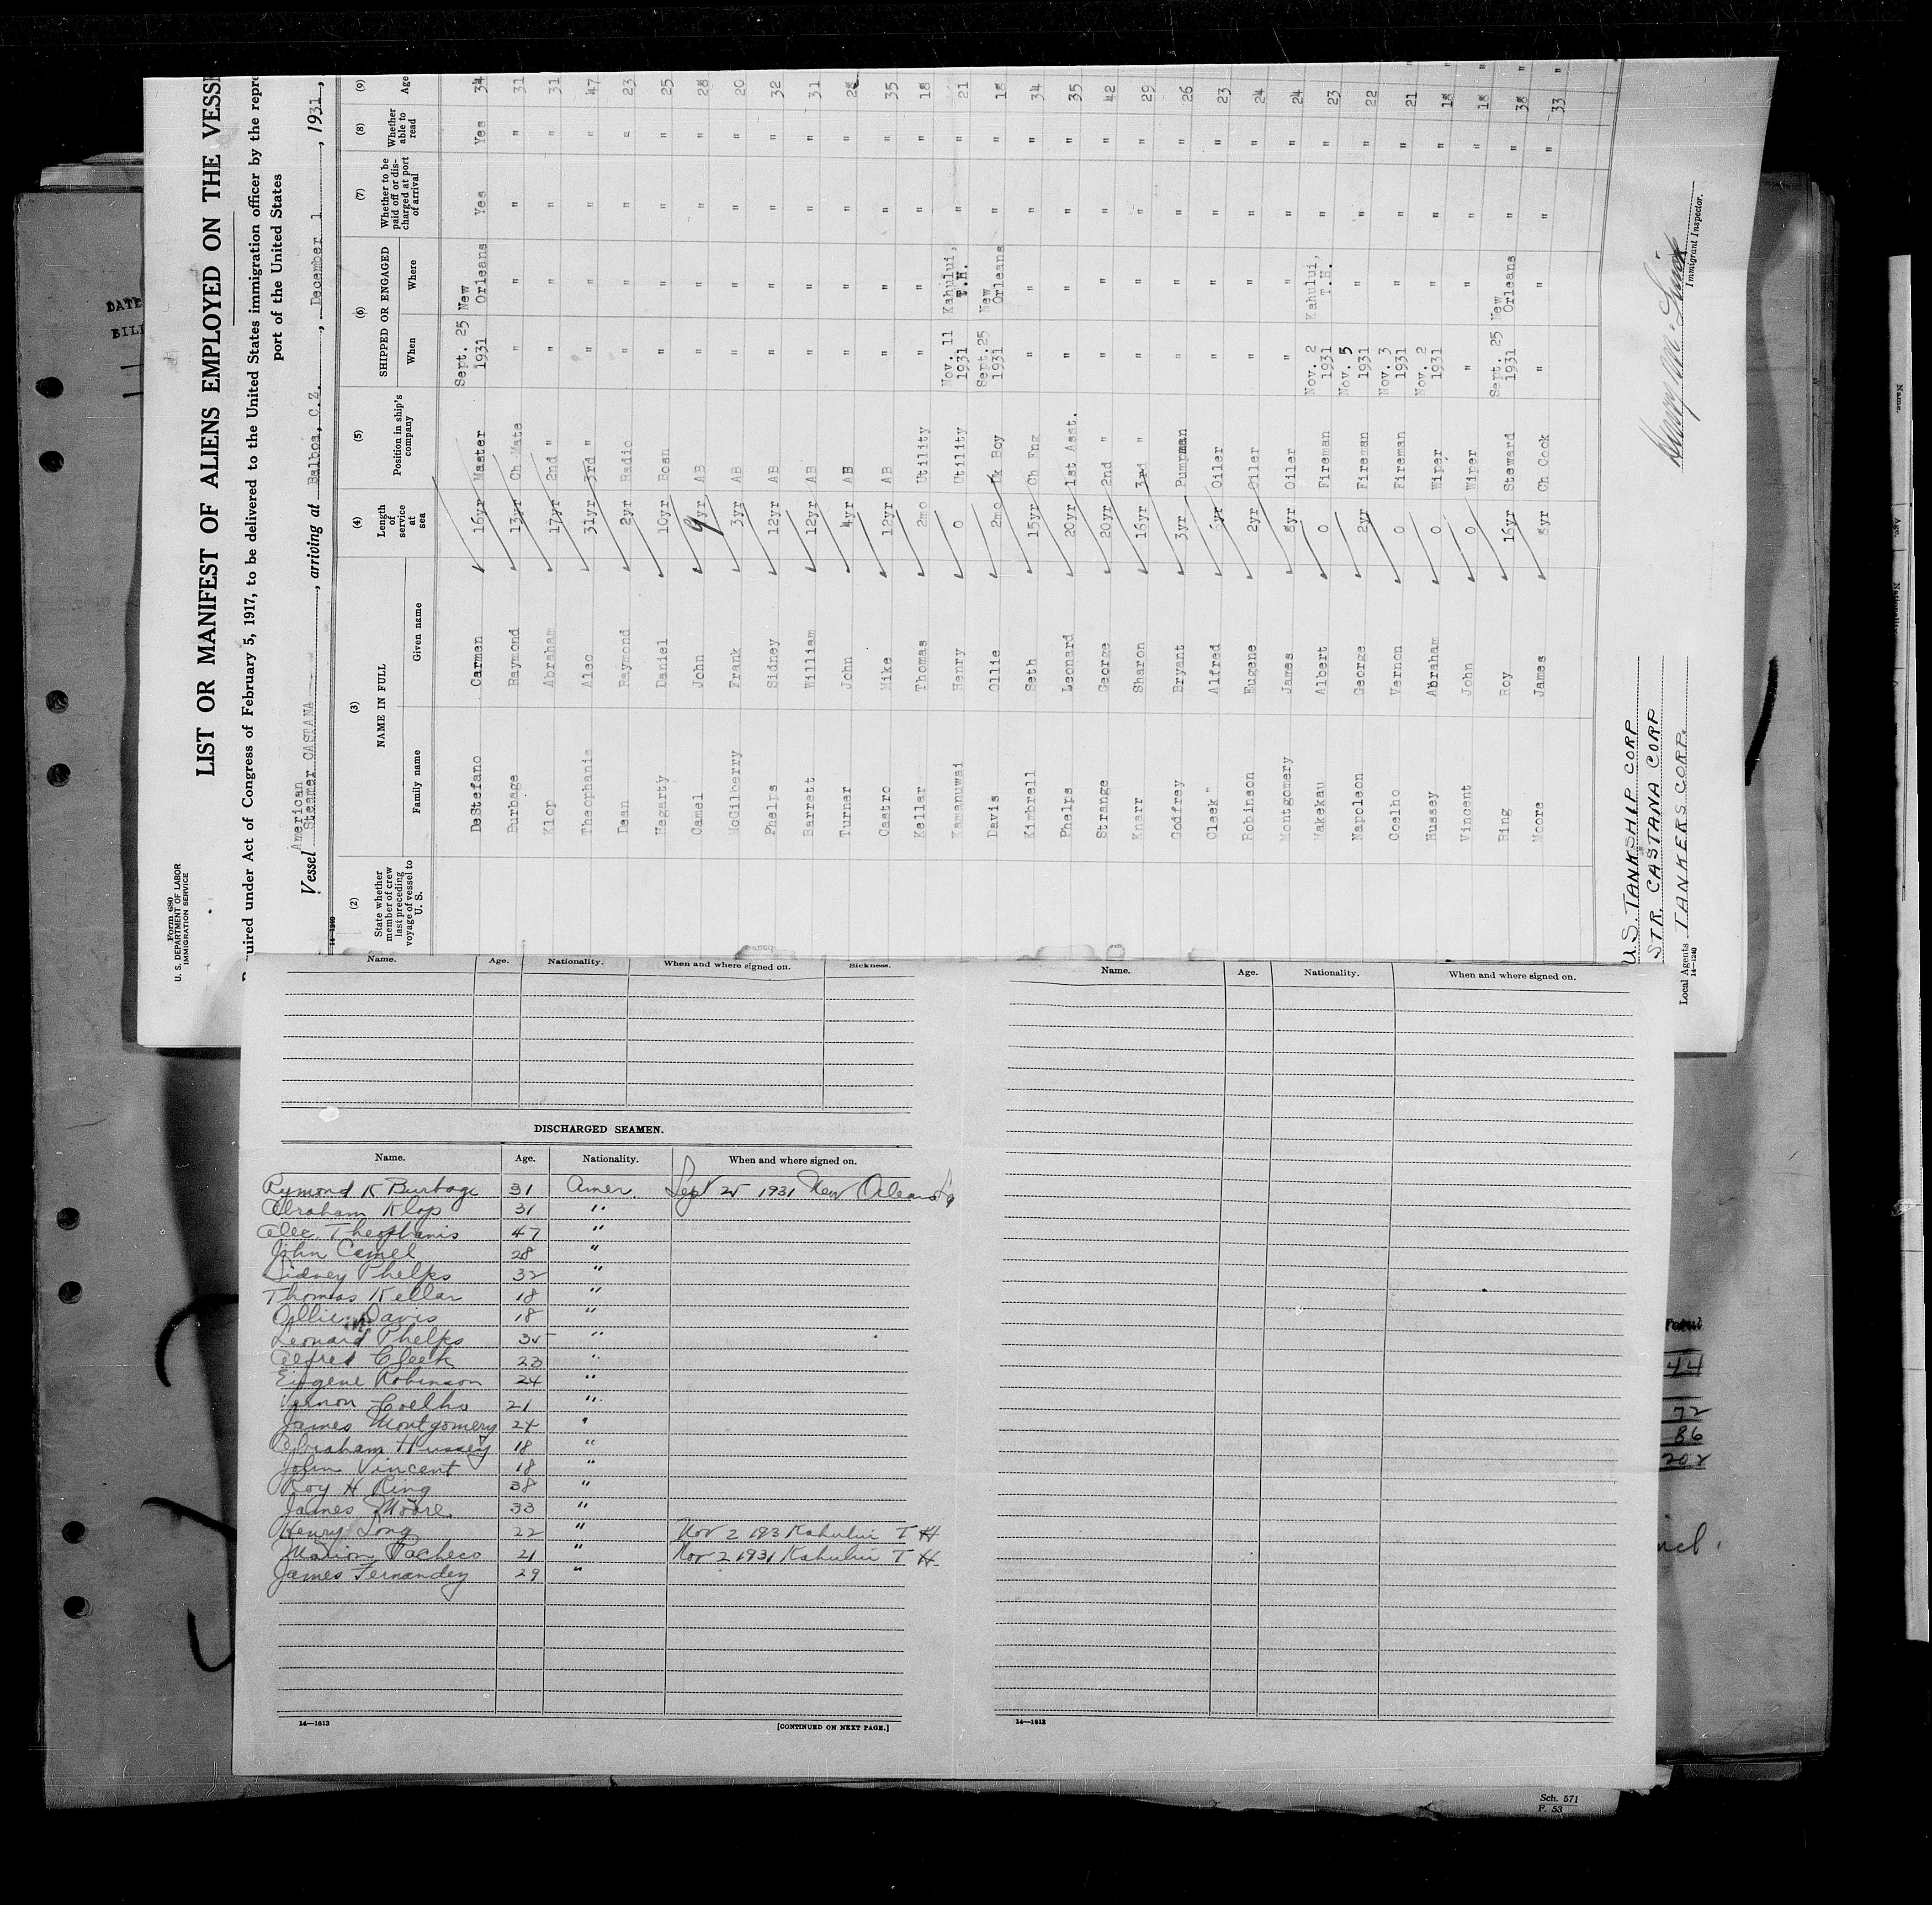 Form 680
U. S. DEPARTMENT OF LABOR
IMMIGRATION SERVICE
LIST OR MANIFEST OF ALIENS EMPLOYED ON THE VESSE
uired under Act of Congress of February 5, 1917, to be delivered to the United States immigration officer by the repre
port of the United States
American
Vessel Steamer CASTANA, arriving at Balboa, C.Z., December 1, 1931,
14-1240
(2) (3) (4) (5) (6) (7) (8) (9)
State whether member of crew last preceding voyage of vessel to U. S. NAME IN FULL Length of service at sea Position in ship's company SHIPPED OR ENGAGED Whether to be paid off or discharged at port of arrival Whether able to read Age
Family name Given name When Where
DeStefano Carmen 16yr Master Sept. 25 1931 New Orleans Yes Yes 34
Burbage Raymond 13yr Ch Mate " " " " 31
Klop Abraham 17yr 2nd " " " " " 31
Theophanis Alec 31yr 3rd " " " " " 47
Dean Raymond 2yr Radio " " " " 23
Hegarty Daniel 10yr Bosn " " " " 25
Camel John 9yr AB " " " " 28
McGilberry Frank 3yr AB " " " " 20
Phelps Sidney 12yr AB " " " " 32
Barrett William 12yr AB " " " " 31
Turner John 4yr AB " " " "
Castro Mike 12yr AB " " " " 35
Kellar Thomas 2mo Utility " " " " 18
Kamanuwai Henry 0 Utility Nov. 11 1931 Kahului, T.H. " " 21
Davis Ollie 2mo Dk Boy Sept. 25 1931 New Orleans " " 18
Kimbrell Seth 15yr Ch Eng " " " " 34
Phelps Leonard 20yr 1st Asst. " " " " 35
Strange George 20yr 2nd " " " " " 42
Knarr Sharon 16yr 3rd " " " " " 29
Godfrey Bryant 3yr Pumpman " " " " 26
Cleek Alfred 6yr Oiler " " " " 23
Robinson Eugene 2yr Oiler " " " " 24
Montgomery James 8yr Oiler " " " " 24
Wakekau Albert 0 Fireman Nov. 2 1931 Kahului, T.H. " " 23
Napoleon George 2yr Fireman Nov. 5 1931 " " " 22
Coelho Vernon 0 Fireman Nov. 3 1931 " " " 21
Hussey Abraham 0 Wiper Nov. 2 1931 " " " 18
Vincent John 0 Wiper " " " " 18
Ring Roy 16yr Steward Sept. 25 1931 New Orleans " " 38
Moore James 8yr Ch Cook " " " " 33
U.S. TANKSHIP CORP
STR. CASTANA CORP
Local Agents TANKERS CORP.
14-1240
Immigrant Inspector.
Name. Age. Nationality. When and where signed on. Sickness.
DISCHARGED SEAMEN.
Name. Age. Nationality. When and where signed on.
Rymond K Burbage 31 Amer. Sept 25 1931 New Orleans La
Abraham Klop 31 "
Alec Theophanis 47 "
John Camel 28 "
Sidney Phelps 32 "
Thomas Kellar 18 "
Ollie Davis 18 "
Leonard Phelps 35 "
Alfred Cleek 23 "
Eugene Robinson 24 "
Vernon Coelho 21 "
James Montgomery 24 "
Abraham Hussey 18 "
John Vincent 18 "
Roy H Ring 38 "
James Moore 33 "
Henry Long 22 " Nov 2 193 Kahului T H
Marion Pacheco 21 " Nov 2 1931 Kahului T H
James Fernandey 29 "
14—1613
[CONTINUED ON NEXT PAGE.]
Name. Age. Nationality. When and where signed on.
14—1613
DATE
BILL
Total
44
72
86
202
Name.
Age.
Sch. 571
P. 53